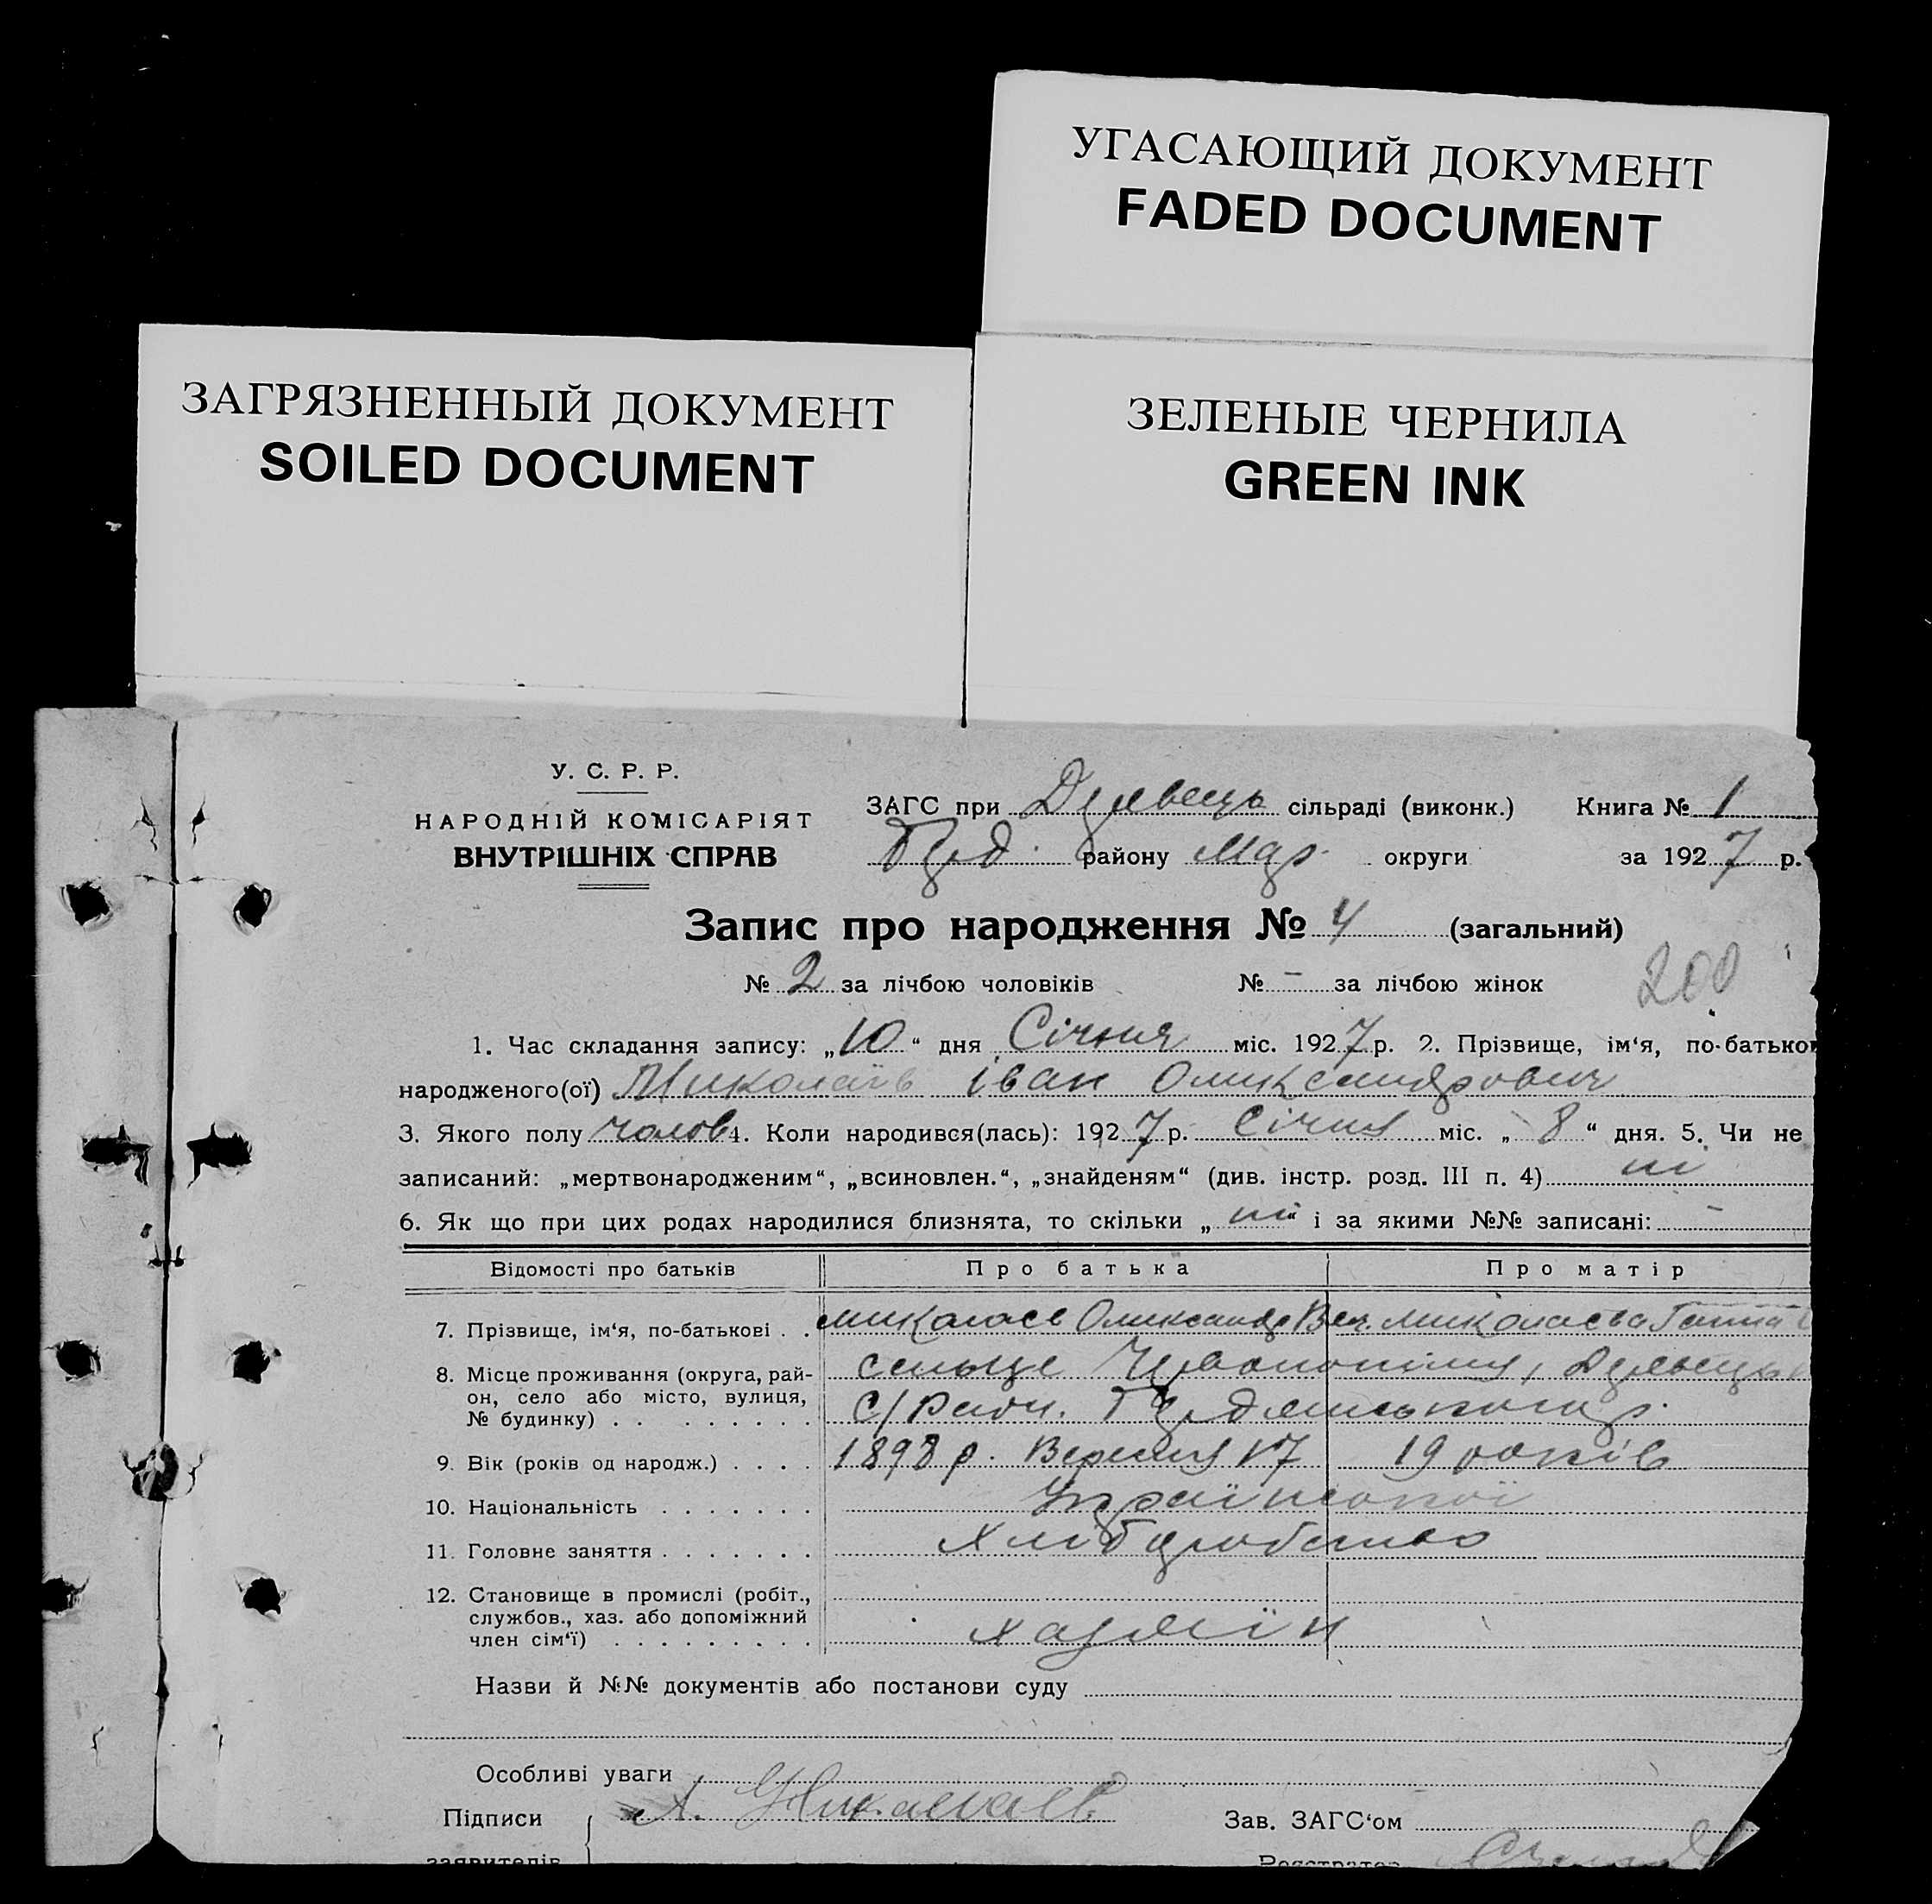 УГАСАЮЩИЙ ДОКУМЕНТ
FADED DOCUMENT
ЗАГРЯЗНЕННЫЙ ДОКУМЕНТ
SOILED DOCUMENT
ЗЕЛЕНЫЕ ЧЕРНИЛА
GREEN INK
У. С. Р. Р.
НАРОДНІЙ КОМІСАРІЯТ
ВНУТРІШНІХ СПРАВ
ЗАГС при сільраді (виконк.) Книга № 1
району Мар. округи за 1927 р.
Запис про народження № 4 (загальний)
№ 2 за лічбою чоловіків № – за лічбою жінок
200
1. Час складання запису: „10“ дня Січня міс. 1927 р. 2. Прізвище, ім‘я, по-батьков
народженого(ої) Миколаїв Іван Олександрович
3. Якого полу чолов 4. Коли народився(лась): 1927 р. Січня міс. „8“ дня. 5. Чи не
записаний: „мертвонародженим“, „всиновлен.“, „знайденям“ (див. інстр. розд. III п. 4) ні
6. Як що при цих родах народилися близнята, то скільки „ні“ і за якими №№ записані: –
Відомості про батьків Про батька Про матір
7. Прізвище, ім‘я, по-батькові . . Миколаєв Олександр Миколаєва Ганна
8. Місце проживання (округа, рай-
он, село або місто, вулиця,
№ будинку) . . . . . . . . С/Ради.
9. Вік (років од народж.) . . . . 1898 р. Вересня 17 19 років
10. Національність . . . . . . . Української
11. Головне заняття . . . . . . . Хліборобство
12. Становище в промислі (робіт.,
службов., хаз. або допоміжний
член сім‘ї) . . . . . . . . . хазяїн
Назви й №№ документів або постанови суду
Особливі уваги
Підписи А. Николаев Зав. ЗАГС‘ом
заявителів Реєстратор